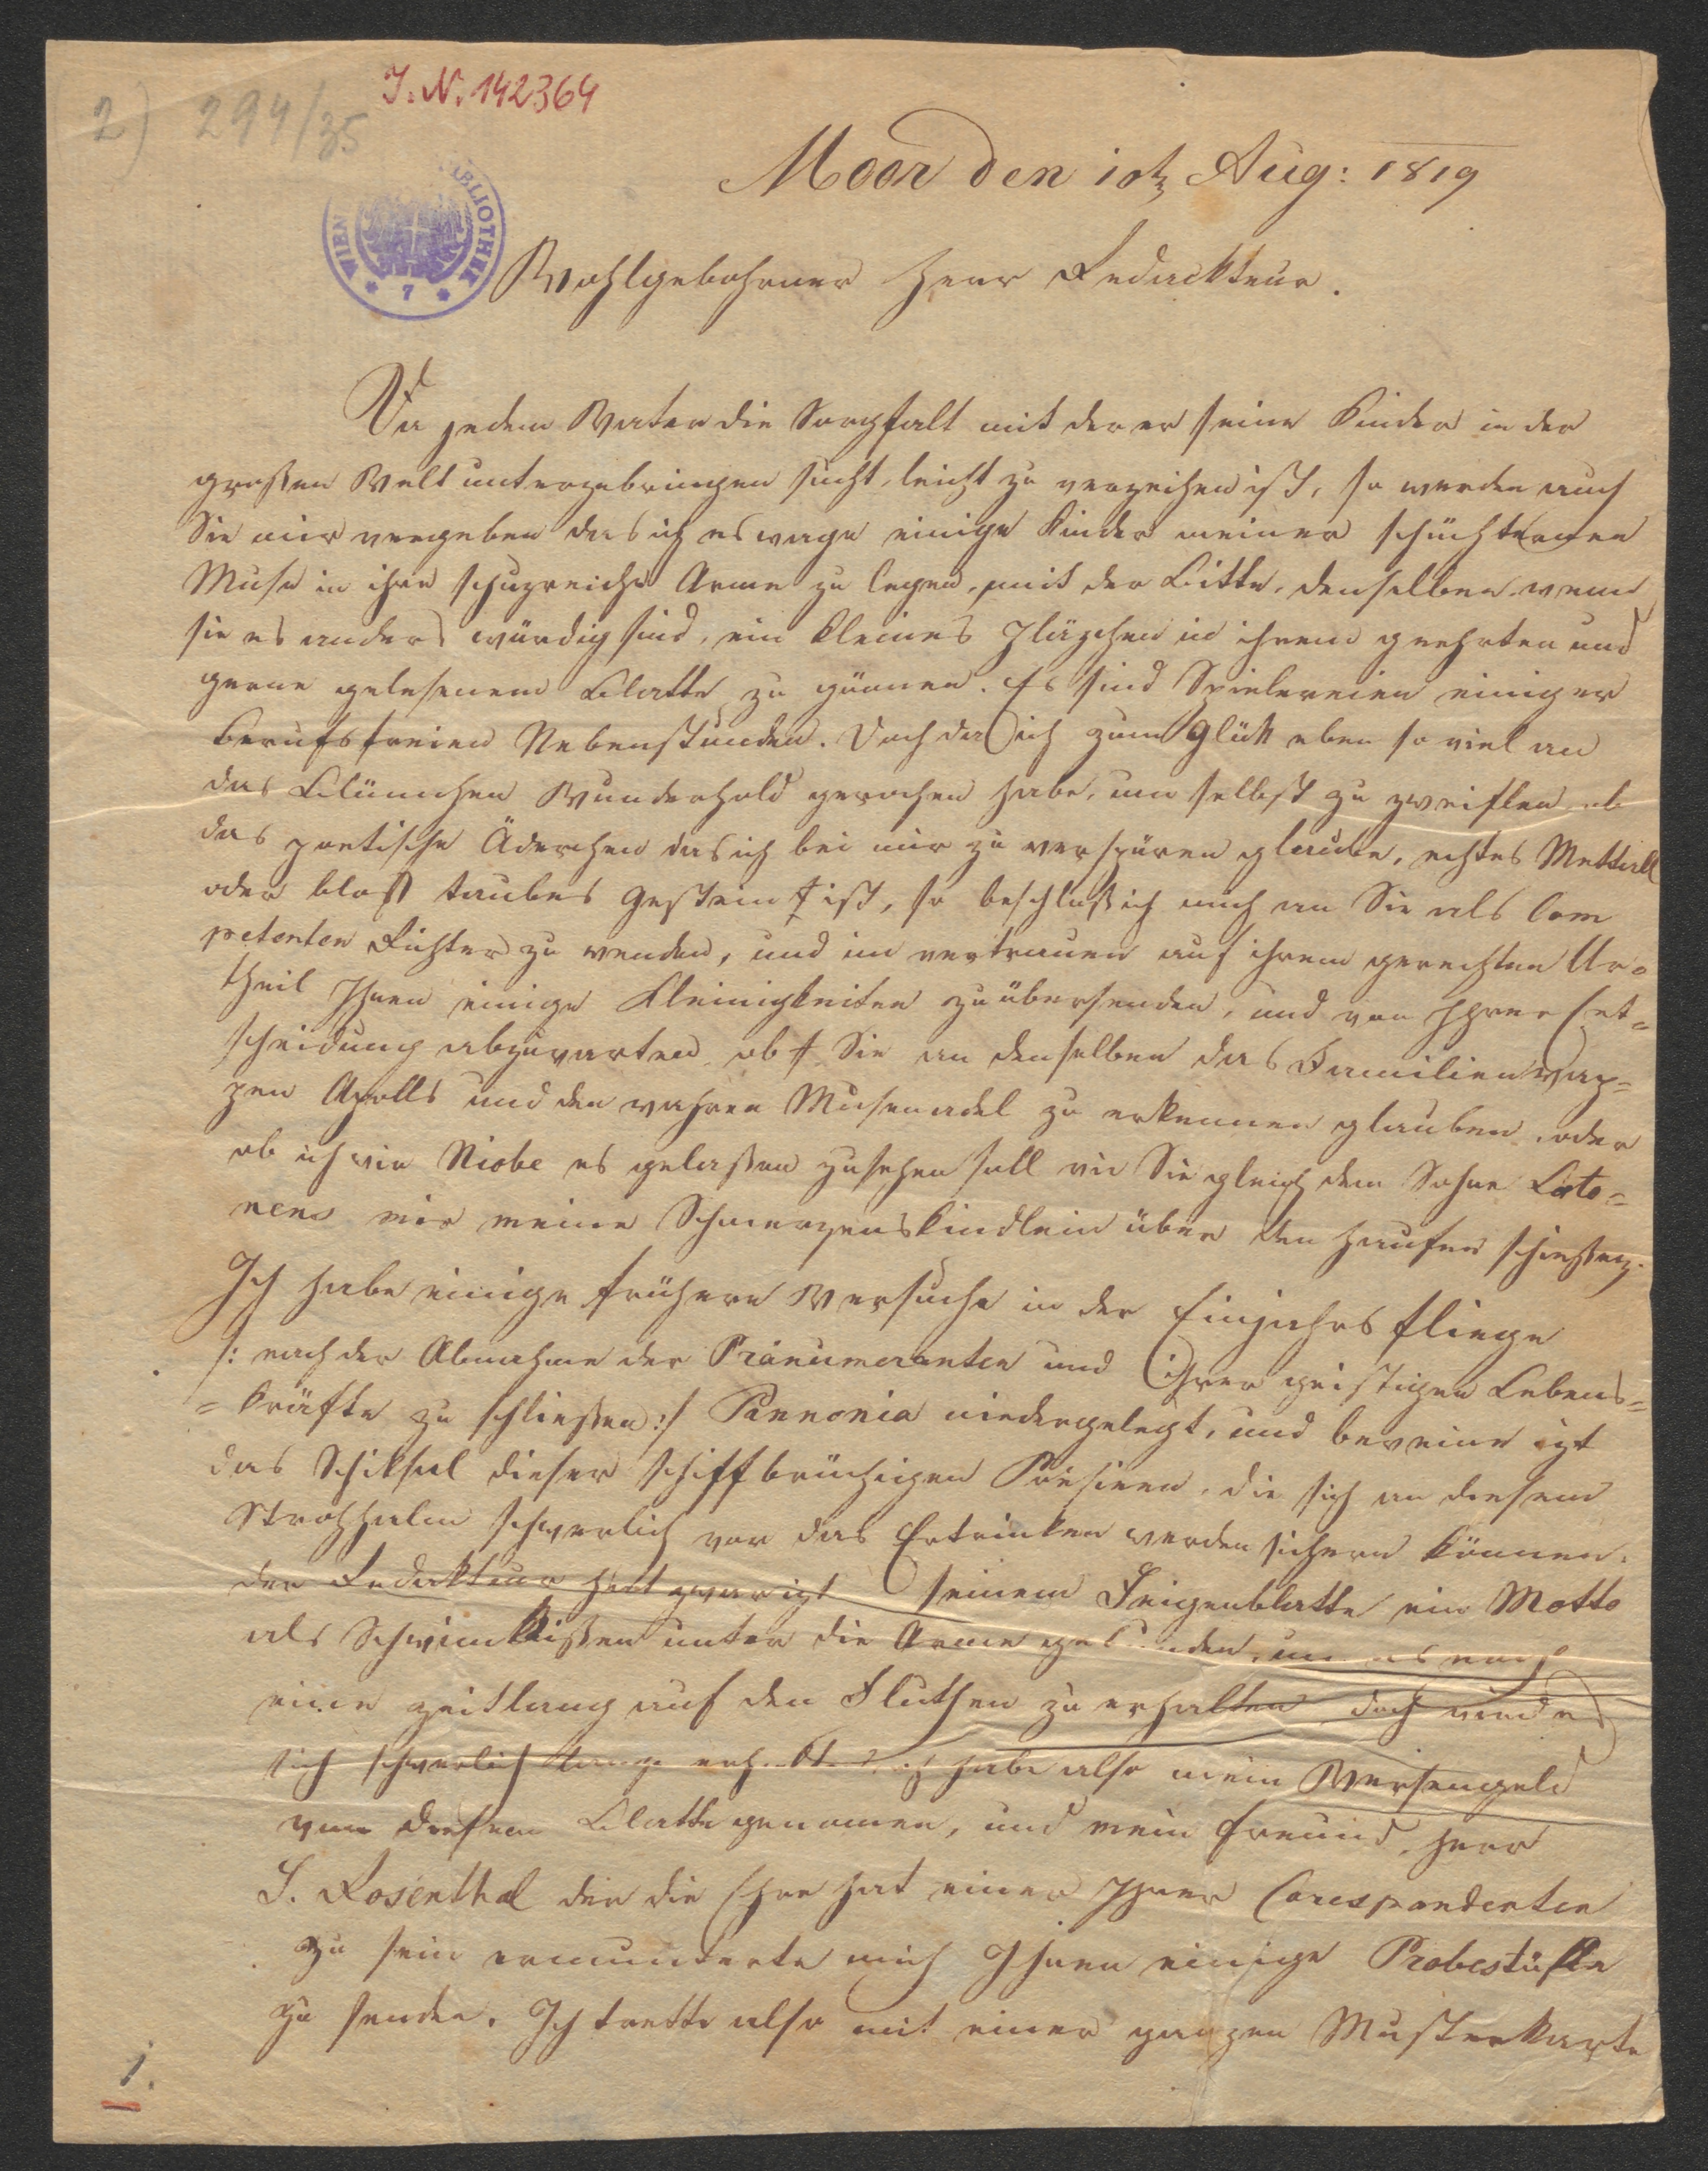 2) 294/35
J. N. 142364
Moor den 10t Aug: 1819
WIEN BIBLIOTHEK
* 7 *
Wohlgebohrner Herr Redackteur.
Da jedem Vater die Sorgfalt mit der er seine Kinder in der
großen Welt unterzubringen sucht, leicht zu verzeihen ist, so werden auch
Sie mir vergeben das ich es wage einige Kinder meiner schüchternen
Muse in ihre schuzreiche Arme zu legen, mit der Bitte, denselben wenn
sie es anders würdig sind, ein kleines Pläzchen in ihrem geehrten und
gerne gelesenem Blatte zu gönnen. Es sind Spielereien einiger
berufsfreien Nebenstunden. Doch da ich zum Glük eben so viel an
das Blümchen Wunderhold gerochen habe, um selbst zu zweiflen ob
das poetische Äderchen das ich bei mir zu verspüren glaube, echtes Mettall
oder bloß taubes Gestein ist, so beschloß ich mich an Sie als Com
petenten Richter zu wenden, und im vertrauen auf ihrem gerechten Ur=
theil Ihnen einige Kleinigkeiten zu übersenden, und von Ihrer Ent=
scheidung abzuwarten ob Sie an denselben das Familienwap=
pen Apolls und den wahren Musenadel zu erkennen glauben oder
ob ich wie Niobe es gelaßen zusehen soll wie Sie gleich dem Sohne Lato=
nens mir meine Schmerzenskindlein über den Haufen schießen.
Ich habe einige frühere Versuche in der Einjahrsfliege
/: nach der Abnahme der Pränumeranten und ihrer geistigen Lebens=
=kräfte zu schließen :/ Pannonia niedergelegt, und beweine izt
das Schiksal dieser schiffbrüchigen Poesieen, die sich an diesem
Strohhalm schwerlich vor das Ertrinken werden sichern können.
der Redakteur hat zwar izt seinem Feigenblatte ein Motto
als Schwimkißen unter die Arme gebunden, um es noch
eine zeitlang auf den Fluthen zu erhalten doch wird es
sich schwerlich lange erhalten ich habe also mein Versengeld
von diesem Blatte genomen, und mein Freund, Herr
S. Rosenthal der die Ehre hat einer Ihrer Corespondenten
zu sein ermunterte mich Ihnen einige Probestüke
zu senden. Ich trette also mit einer ganzen Musterkarte
1.